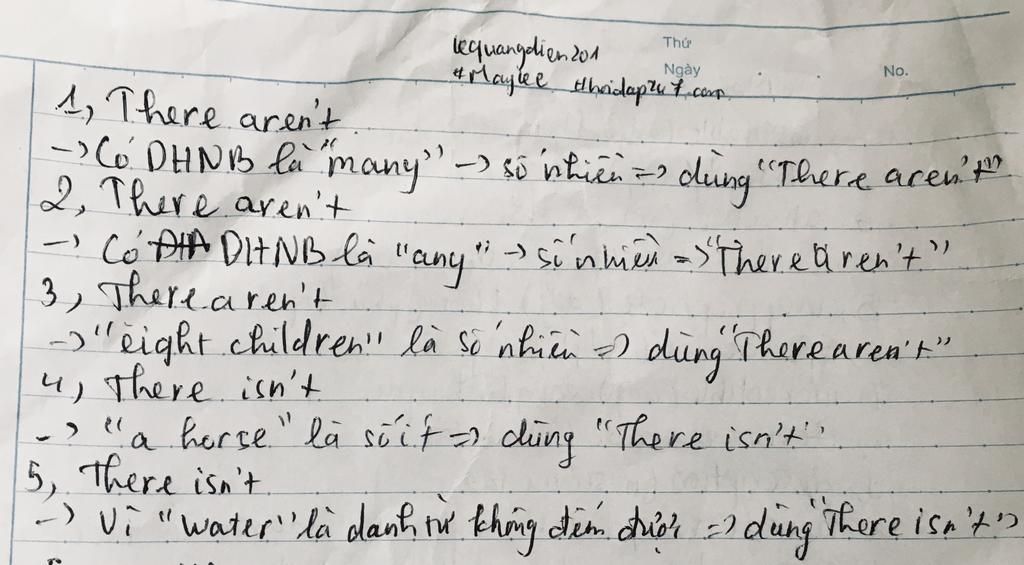 lequangdien201
Thứ
#Maylee #hoidap247.com
Ngày
No.
1, There aren't
-> Có DHNB là "many" -> số nhiều => dùng "There aren't"
2, There aren't
-> Có DHNB là "any" -> số nhiều => "There aren't"
3, There aren't
-> "eight children" là số nhiều => dùng "There aren't"
4, There isn't
-> "a horse" là số ít => dùng "There isn't"
5, There isn't
-> Vì "water" là danh từ không đếm được => dùng "There isn't"